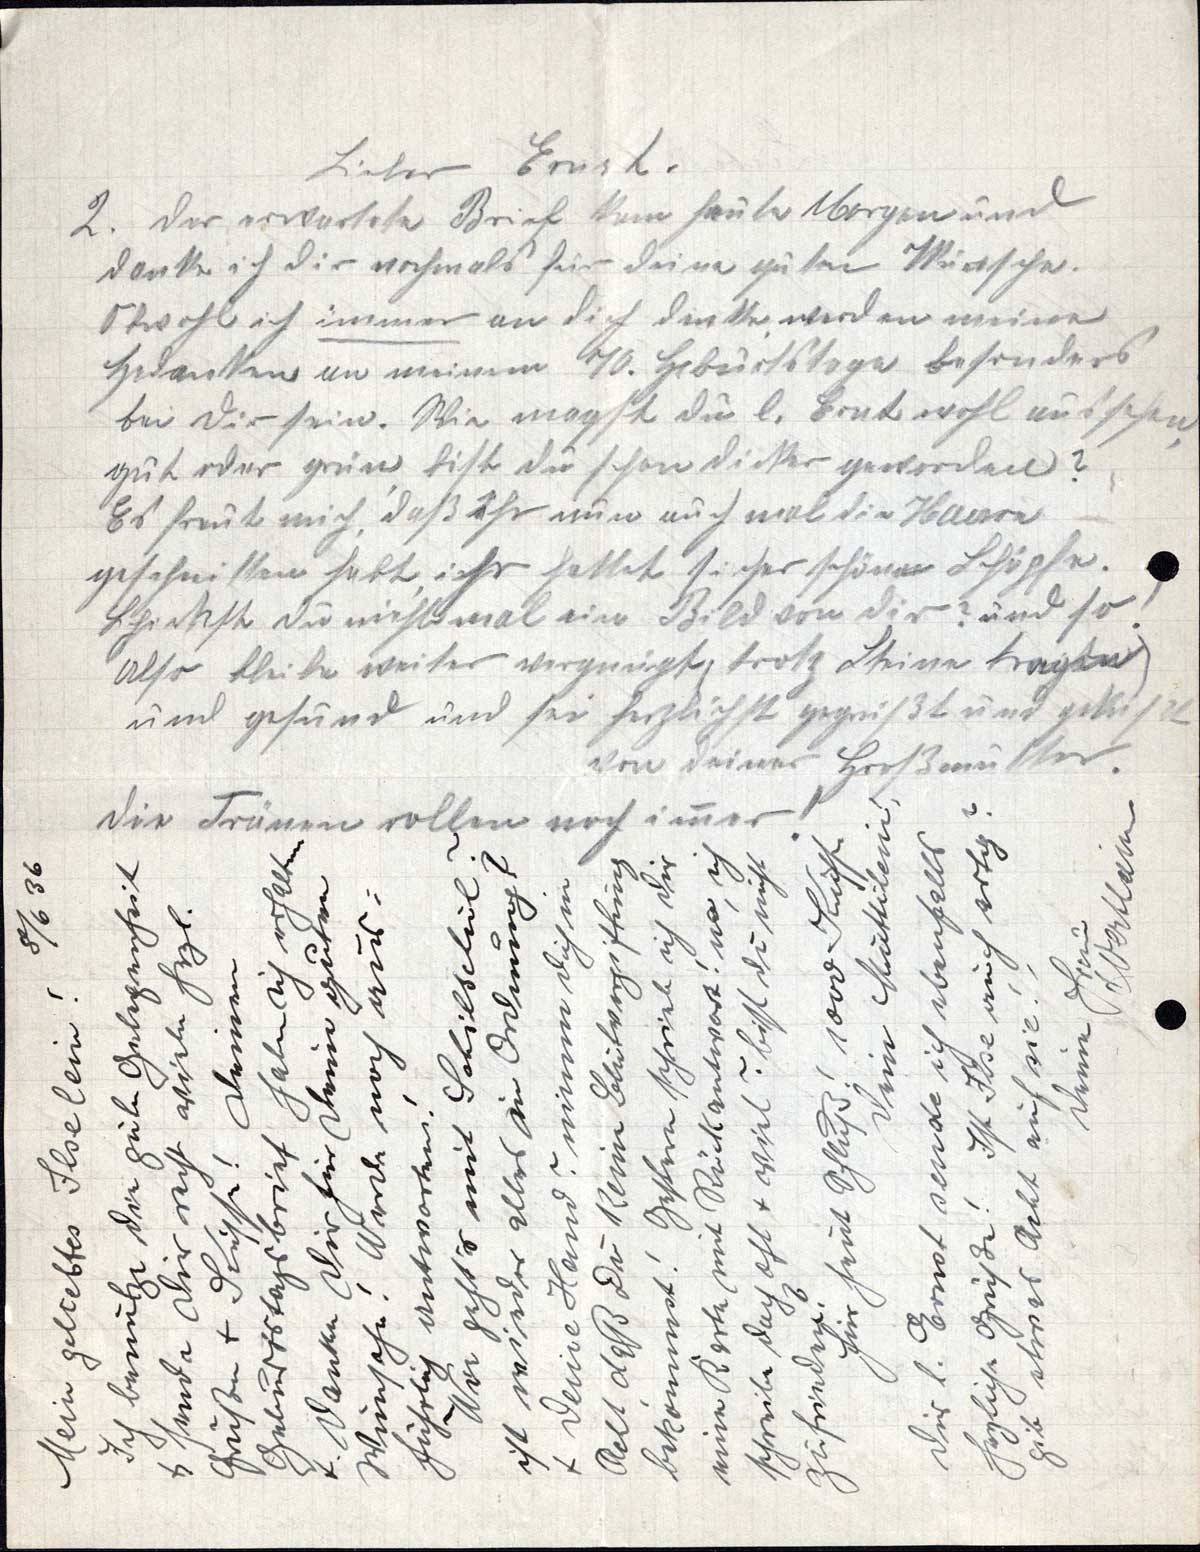 Lieber Ernst.
2. Der erwartete Brief kam heute Morgen und
danke ich dir nochmals für deine guten Wünsche.
Obwohl ich immer an dich denke, werden meine
Gedanken an meinem 70. Geburtstage besonders
bei Dir sein. Wie magst du l. Ernst wohl aussehen,
gut oder grün, bist du schon dicker geworden?
Es freut mich, daß Ihr nun auch mal die Haare
geschnitten habt, ihr hattet sicher schöne Schöpfe.
Schickst du nicht mal ein Bild von dir? und so!
Also bleibe weiter vergnügt, trotz Steine tragen
und gesund und sei herzlichst gegrüßt und geküsst
von deiner Großmutter.
Die Tränen rollen noch immer!
8/6 36
Mein geliebtes Ilselein!
Ich benutze die gute Gelegenheit
& sende Dir recht viele herzl.
Grüße & Küsse! Deinen
Geburtstagsbrief habe ich erhalten
& danke Dir für Deine guten
Wünsche! Werde noch aus-
führlich antworten!
Wie geht's mit
ist wieder alles in Ordnung?
& Deine Hand? nimm dich in
Acht daß Du keine Blutvergiftung
bekommst! Gestern schrieb ich Dir
eine Karte mit Rückantwort! na, ich
schreibe doch oft & viel? bist du nicht
zufrieden?
Für heut Schluß! 1000 Küsse
Dein Muttilein,
Dir l. Ernst sende ich ebenfalls
herzliche Grüße! Ist Ilse auch artig?
gib etwas Acht auf sie!
Deine Frau